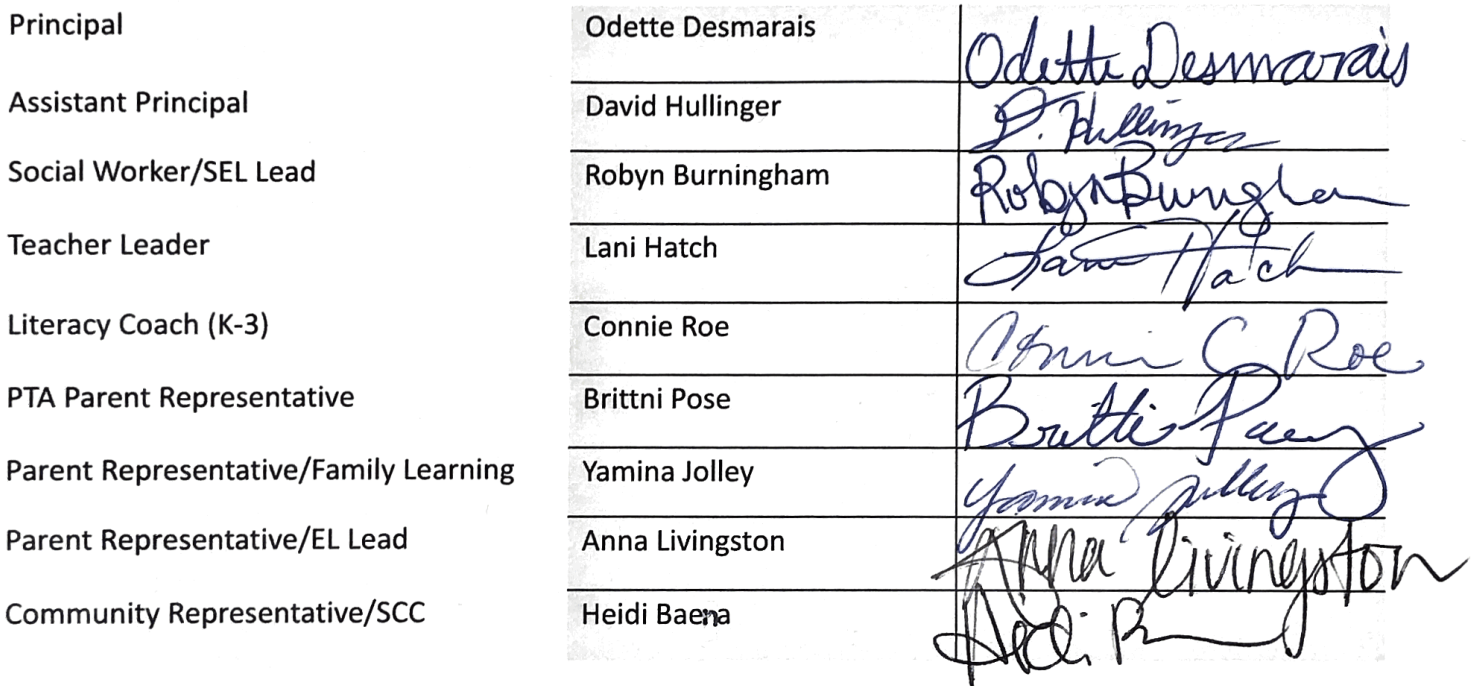 Principal Odette Desmarais Odette Desmarais
Assistant Principal David Hullinger D. Hullinger
Social Worker/SEL Lead Robyn Burningham Robyn
Teacher Leader Lani Hatch Lani Hatch
Literacy Coach (K-3) Connie Roe Connie C Roe
PTA Parent Representative Brittni Pose
Parent Representative/Family Learning Yamina Jolley Yamina Jolley
Parent Representative/EL Lead Anna Livingston Anna Livingston
Community Representative/SCC Heidi Baena Heidi